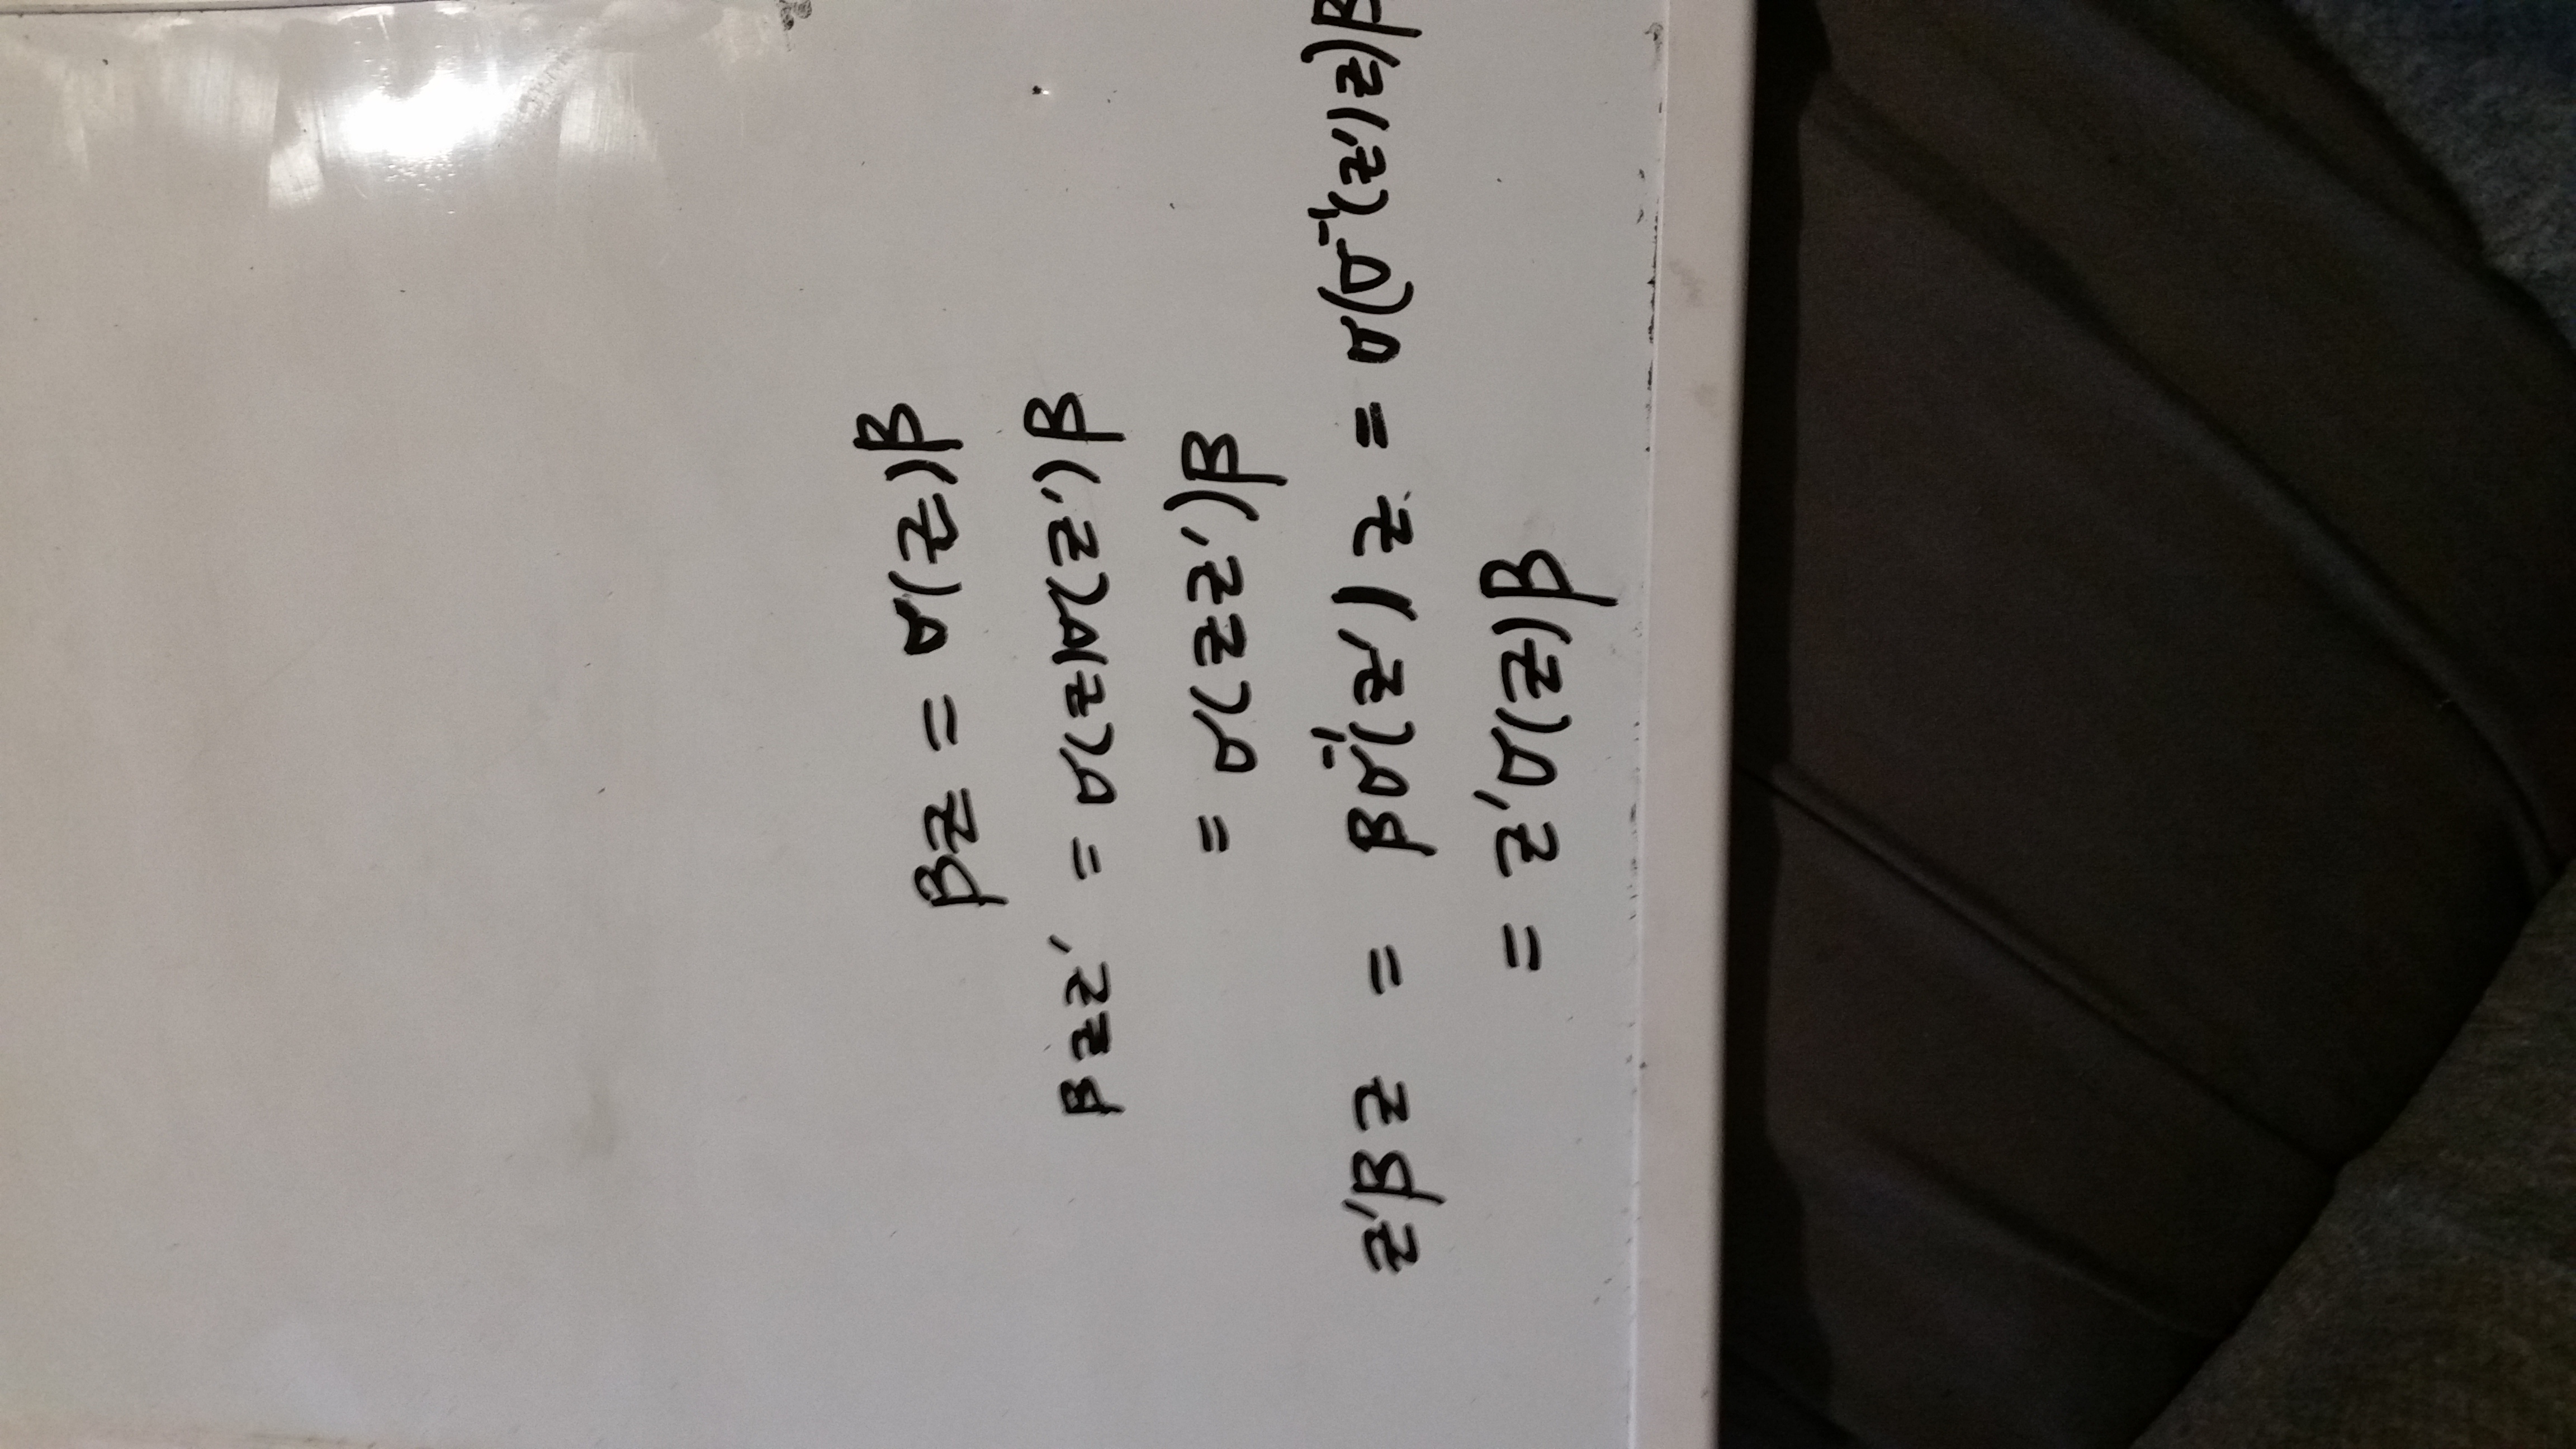 βz = σ(z)β
βzz' = σ(z)σ(z')β
= σ(zz')β
z'βz = βσ⁻¹(z')z = σ(σ⁻¹(z')z)β
= z'σ(z)β